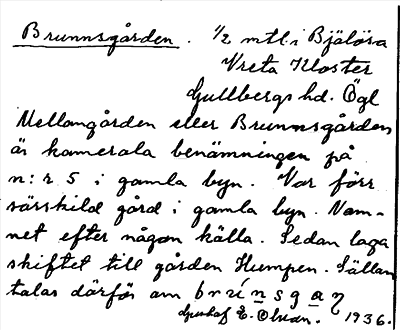 Brunnsgården. 1/2 mtl. i Bjälösa
Vreta Kloster
Gullbergs hd. Ögl
Mellangården eller Brunnsgården
är kamerala benämningen på
n:r 5 i gamla byn. Var förr
särskild gård i gamla byn. Nam-
net efter någon källa. Sedan laga
skiftet till gården Kumpen. Sällan
talas därför om
Gustaf E. Olsson. 1936.